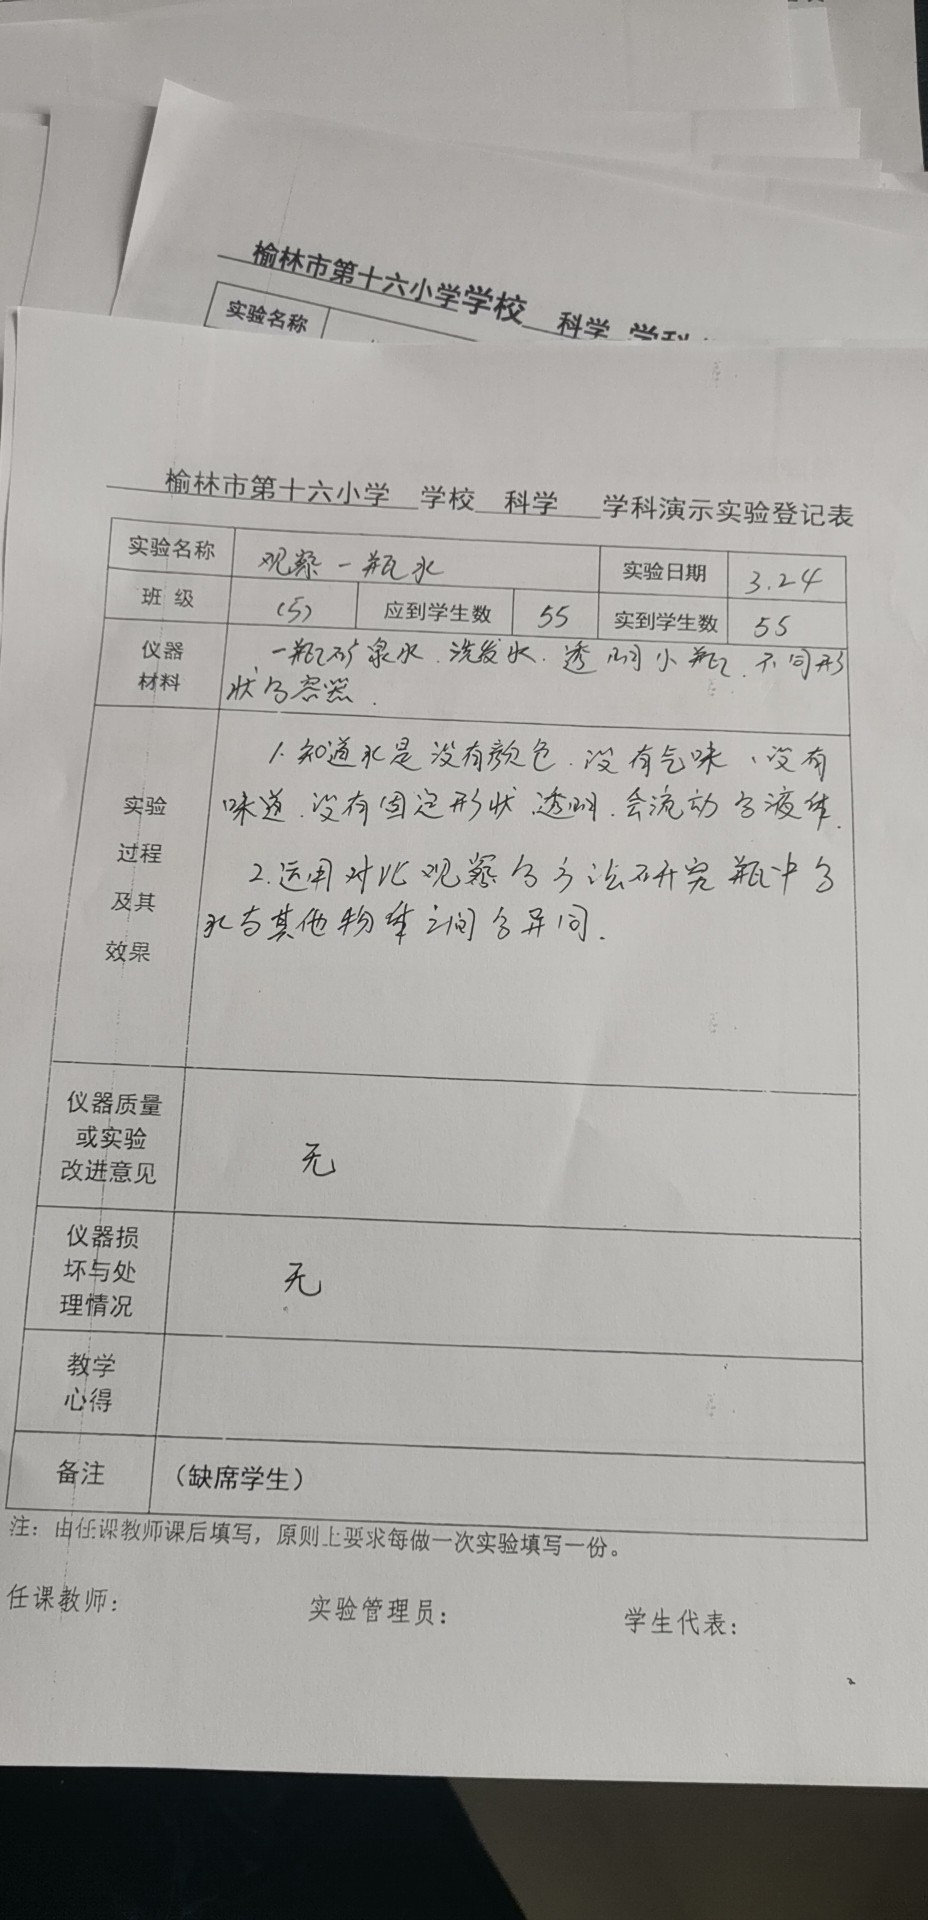 榆林市第十六小学学校 科学 学科
实验名称
榆林市第十六小学 学校 科学 学科演示实验登记表
实验名称 观察一瓶水 实验日期 3.24
班 级 (5) 应到学生数 55 实到学生数 55
仪器 一瓶矿泉水、洗发水、透明小瓶、不同形
材料 状的容器.
1. 知道水是没有颜色、没有气味、没有
实验 味道、没有固定形状、透明、会流动的液体.
过程 2.运用对比观察的方法研究瓶中的
及其 水与其他物体之间的异同.
效果
仪器质量
或实验 无
改进意见
仪器损
坏与处 无
理情况
教学
心得
备注 (缺席学生)
注：由任课教师课后填写，原则上要求每做一次实验填写一份。
任课教师： 实验管理员： 学生代表：